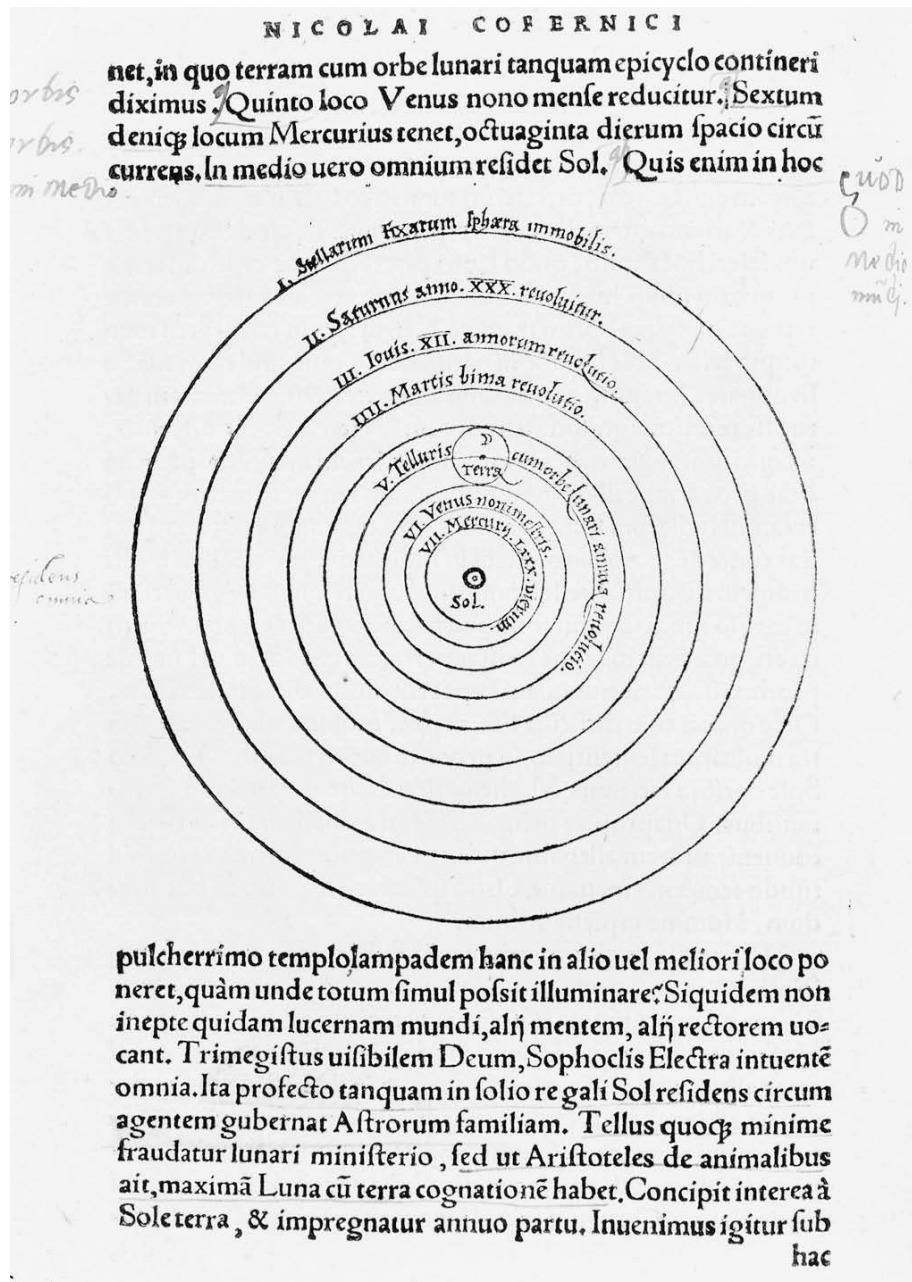 NICOLAI COPERNICI
net, in quo terram cum orbe lunari tanquam epicyclo contineri
diximus. Quinto loco Venus nono mense reducitur. Sextum
deniqꝫ locum Mercurius tenet, octuaginta dierum spacio circũ
currens. In medio uero omnium residet Sol. Quis enim in hoc
orbis
orbis.
in medio
quod
in
medio
I. Stellarum fixarum sphæra immobilis.
II. Saturnus anno. XXX. reuoluitur.
III. Iouis. XII. annorum reuolutio.
IIII. Martis bima reuolutio.
V. Telluris
terra
cum orbe lunari annua reuolutio.
VI. Venus nonimestris.
VII. Mercurij. LXXX. dierum.
Sol.
residens
omnia
pulcherrimo templo lampadem hanc in alio uel meliori loco po
neret, quàm unde totum simul possit illuminare? Siquidem non
inepte quidam lucernam mundi, alij mentem, alij rectorem uo-
cant. Trimegistus uisibilem Deum, Sophoclis Electra intuentẽ
omnia. Ita profecto tanquam in solio regali Sol residens circum
agentem gubernat Astrorum familiam. Tellus quoqꝫ minime
fraudatur lunari ministerio, sed ut Aristoteles de animalibus
ait, maximã Luna cũ terra cognationẽ habet. Concipit interea à
Sole terra, & impregnatur annuo partu. Inuenimus igitur sub
hac